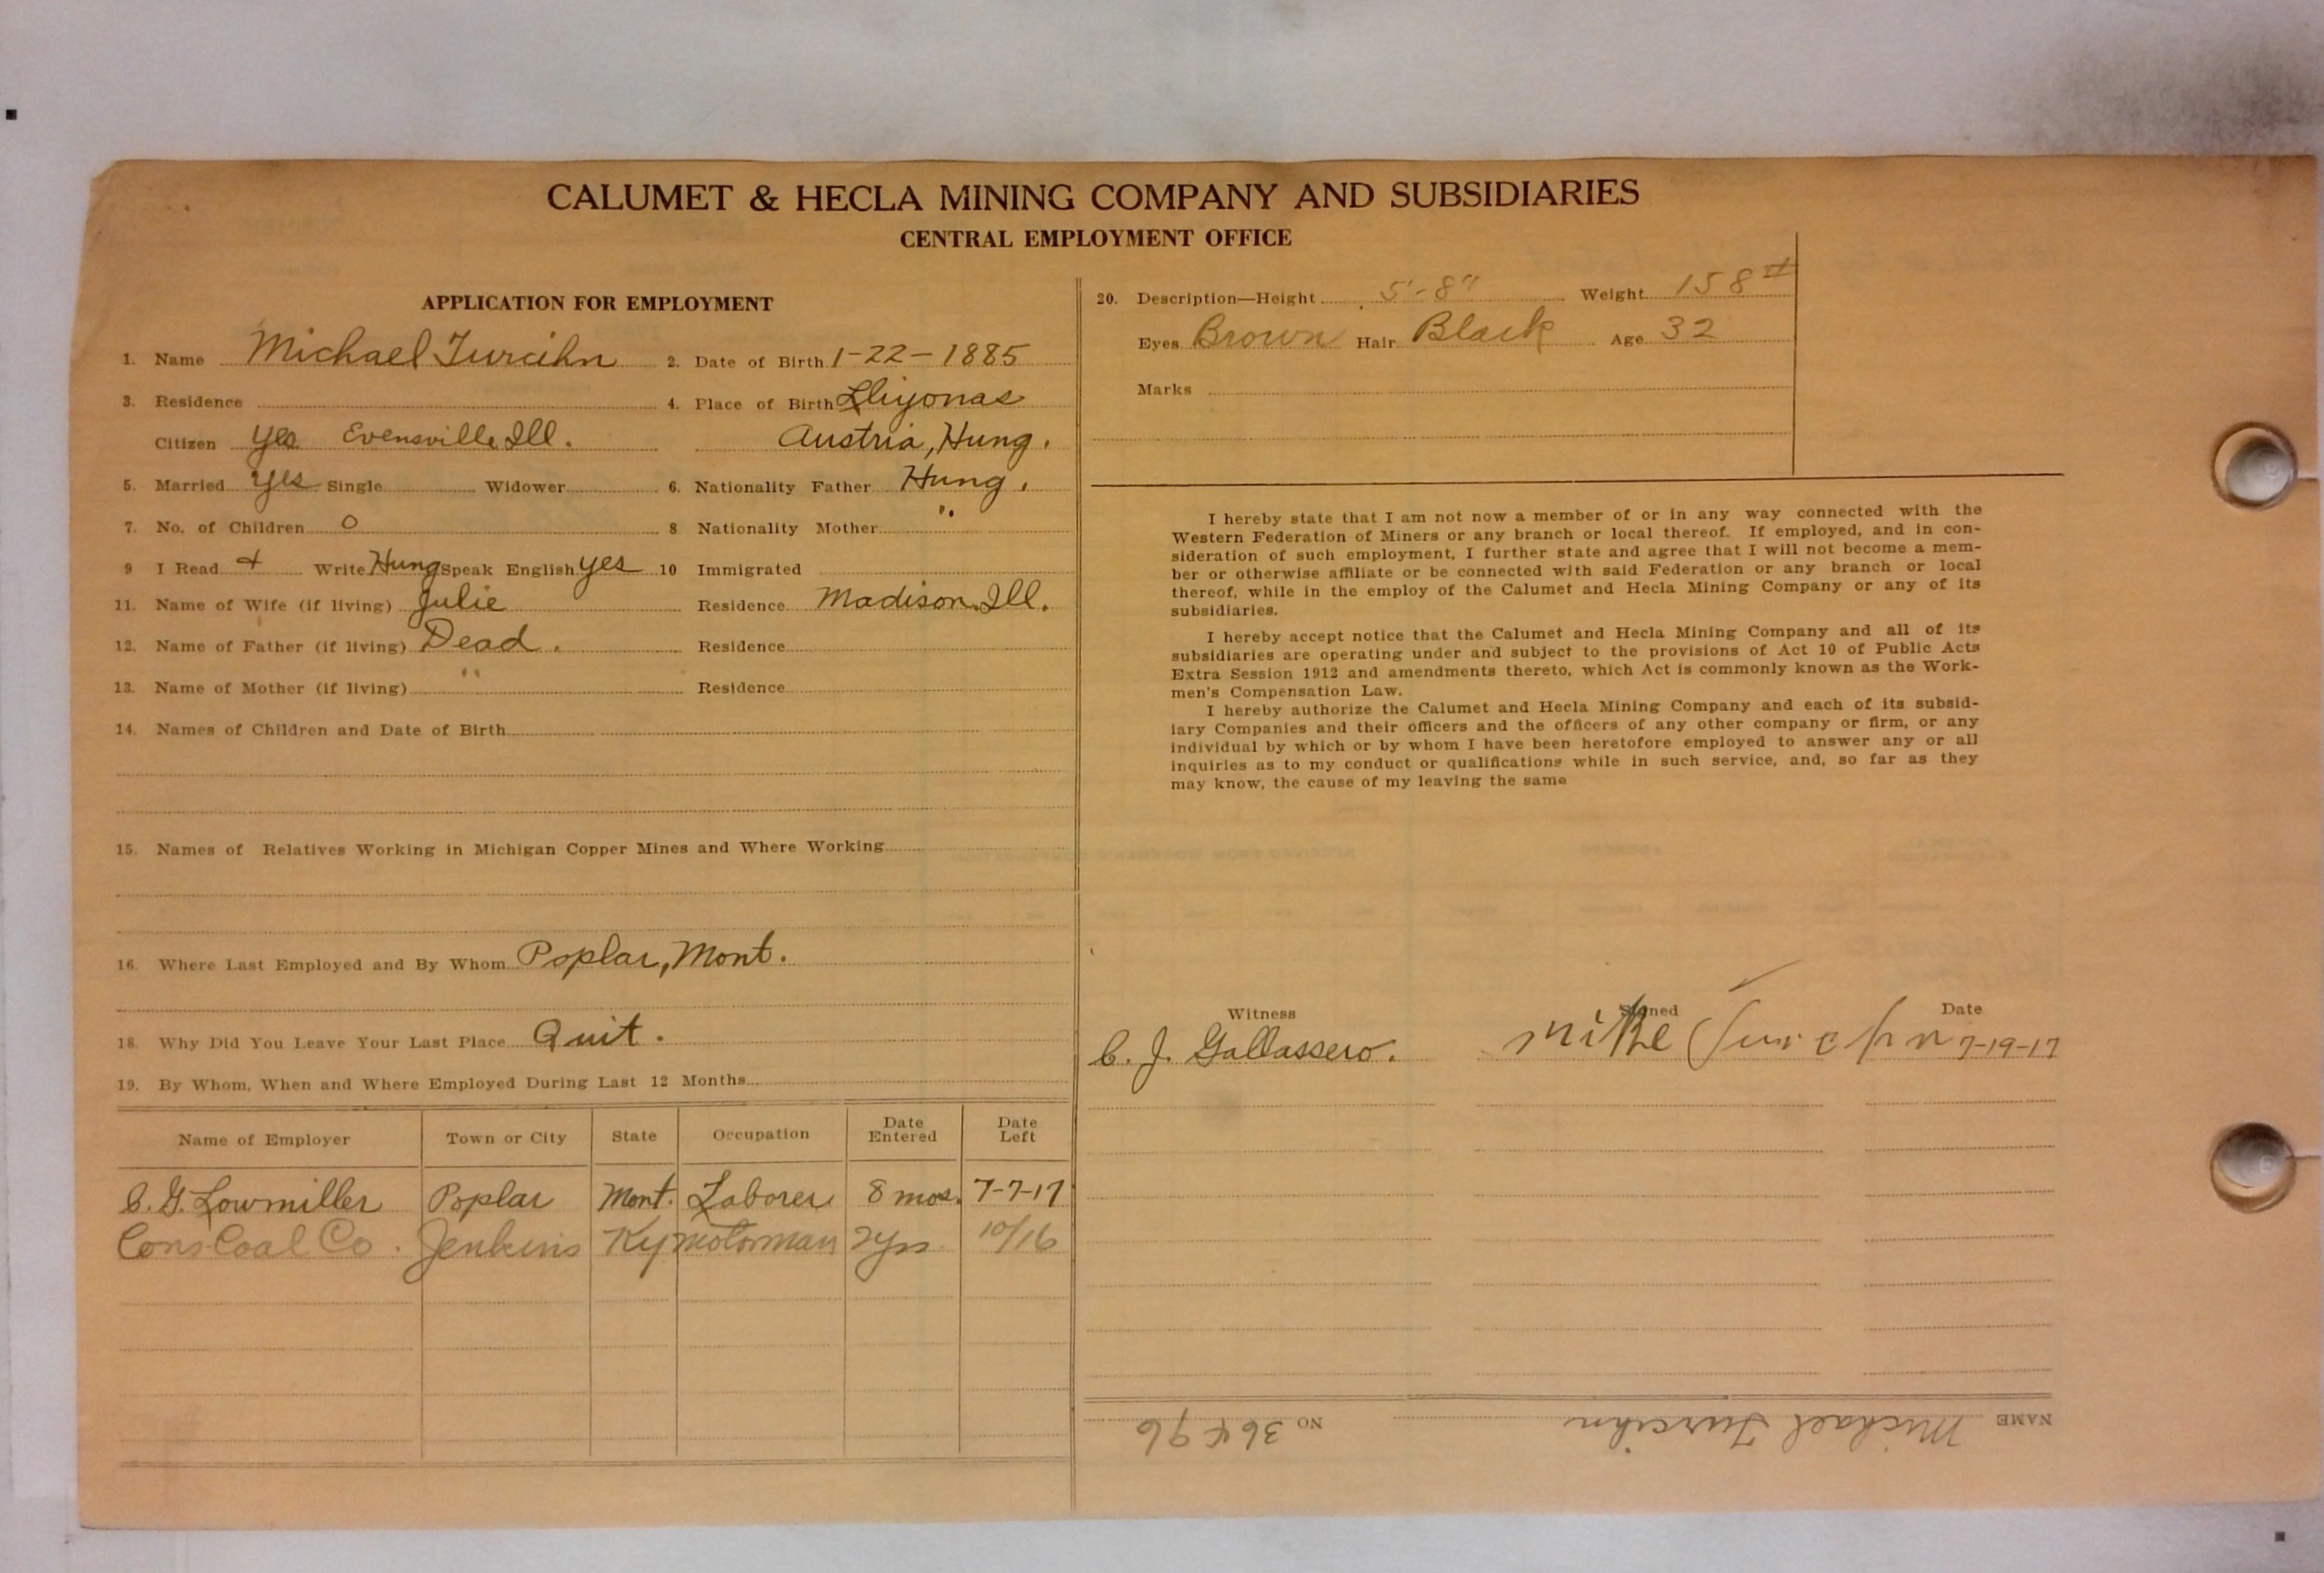 CALUMET & HECLA MINING COMPANY AND SUBSIDIARIES
CENTRAL EMPLOYMENT OFFICE
APPLICATION FOR EMPLOYMENT
1. Name Michael Turcihn 2. Date of Birth 1-22-1885
3. Residence 4. Place of Birth
Citizen Yes Evensville, Ill. Austria, Hung.
5. Married Yes Single Widower 6. Nationality Father Hung.
7. No. of Children 0 8 Nationality Mother "
9 I Read + Write Hung Speak English yes 10 Immigrated
11. Name of Wife (if living) Julie Residence Madison, Ill.
12. Name of Father (if living) Dead. Residence
13. Name of Mother (if living) " Residence
14. Names of Children and Date of Birth
15. Names of Relatives Working in Michigan Copper Mines and Where Working
16. Where Last Employed and By Whom Poplar, Mont.
18. Why Did You Leave Your Last Place Quit.
19. By Whom, When and Where Employed During Last 12 Months
Name of Employer Town or City State Occupation Date Entered Date Left
C. G. Lowmiller Poplar Mont. Laborer 8 mos. 7-7-17
Cons Coal Co. Jenkins Ky motorman 2 yrs 10/16
20. Description—Height 5'-8" Weight 158#
Eyes Brown Hair Black Age 32
Marks
I hereby state that I am not now a member of or in any way connected with the
Western Federation of Miners or any branch or local thereof. If employed, and in con-
sideration of such employment, I further state and agree that I will not become a mem-
ber or otherwise affiliate or be connected with said Federation or any branch or local
thereof, while in the employ of the Calumet and Hecla Mining Company or any of its
subsidiaries.
I hereby accept notice that the Calumet and Hecla Mining Company and all of its
subsidiaries are operating under and subject to the provisions of Act 10 of Public Acts
Extra Session 1912 and amendments thereto, which Act is commonly known as the Work-
men's Compensation Law.
I hereby authorize the Calumet and Hecla Mining Company and each of its subsid-
iary Companies and their officers and the officers of any other company or firm, or any
individual by which or by whom I have been heretofore employed to answer any or all
inquiries as to my conduct or qualifications while in such service, and, so far as they
may know, the cause of my leaving the same
Witness Signed Date
C. J. Gallassero. Mike Turchn 7-19-17
NAME Michael Turcihn NO 36496